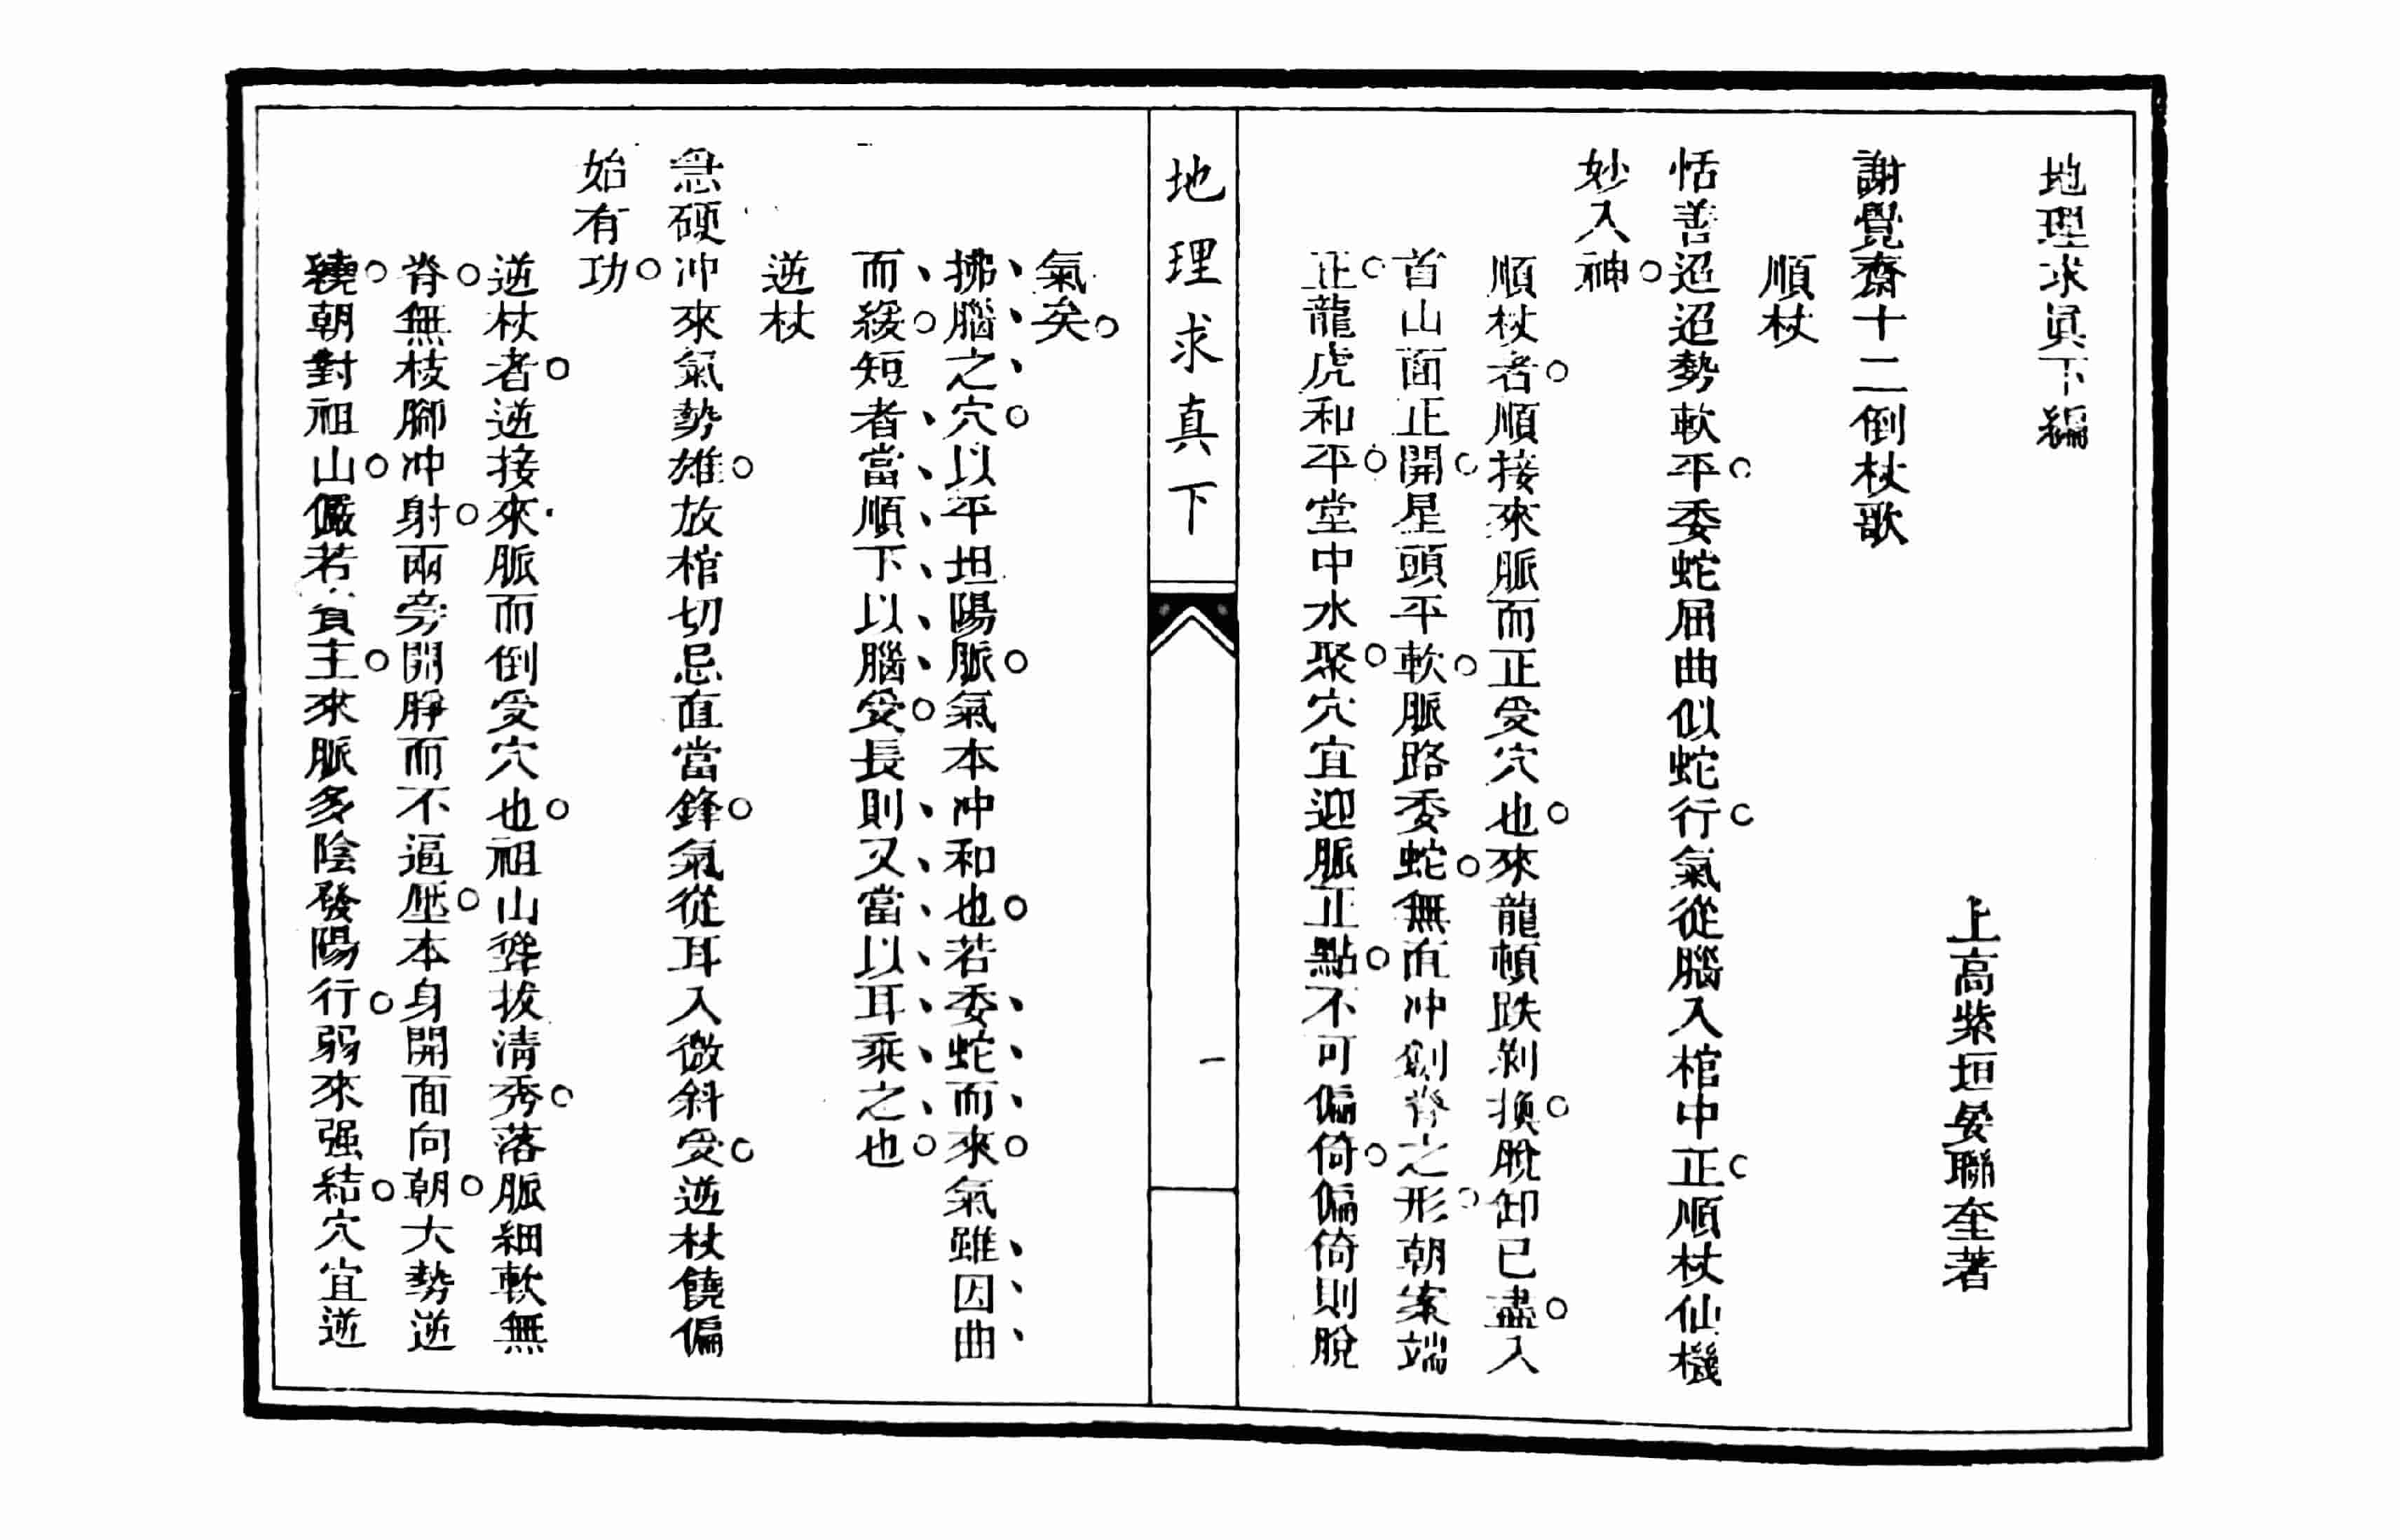 地理求眞下編
上高紫垣晏聯奎著
謝覺齋十二倒杖歌
順杖
恬善迢迢勢軟平。委蛇屈曲似蛇行。氣從腦入棺中正。順杖仙機
妙入神。
順杖者。順接來脈而正受穴也。來龍頓跌剝換。脫卸已盡。入
首山面正開。星頭平軟。脈路委蛇。無直冲劍脊之形。朝案端
正。龍虎和平。堂中水聚。穴宜迎脈正點。不可偏倚。偏倚則脫
地理求真下
一
氣矣。
拂腦之穴。以平坦陽脈。氣本冲和也。若委蛇而來。氣雖因曲
而緩。短者當順下以腦受。長則又當以耳乘之也。
逆杖
急硬冲來氣勢雄。放棺切忌直當鋒。氣從耳入微斜受。逆杖饒偏
始有功。
逆杖者。逆接來脈而倒受穴也。祖山聳拔清秀。落脈細軟無
脊。無枝腳冲射。兩旁開睜而不逼壓。本身開面向朝。大勢逆
繞。朝對祖山。儼若賓主。來脈多陰發陽行。弱來强結。穴宜逆